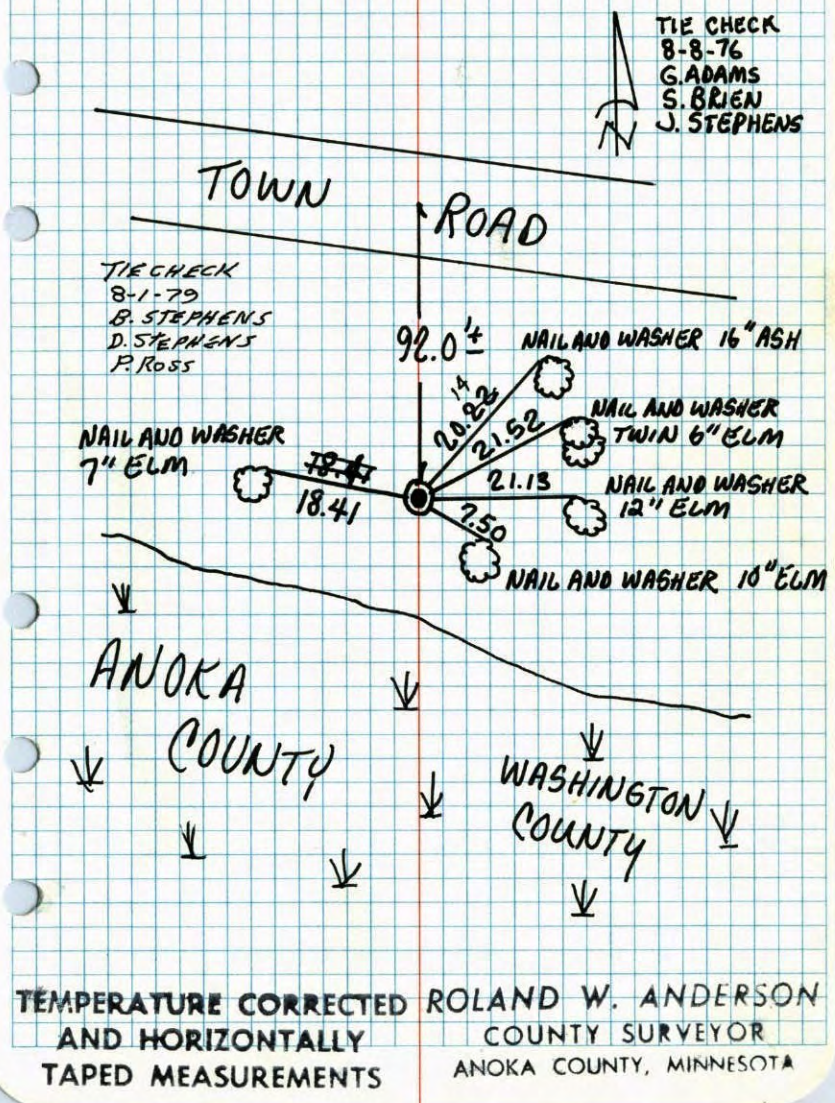 TIE CHECK
8-8-76
G. ADAMS
S. BRIEN
J. STEPHENS
N
TOWN ROAD
TIE CHECK
8-1-79
B. STEPHENS
D. STEPHENS
P. ROSS
92.0'±
NAIL AND WASHER 16" ASH
14
20.22
21.52
NAIL AND WASHER
TWIN 6" ELM
NAIL AND WASHER
7" ELM
18.41
21.13
NAIL AND WASHER
12" ELM
7.50
NAIL AND WASHER 10" ELM
ANOKA
COUNTY
WASHINGTON
COUNTY
TEMPERATURE CORRECTED
AND HORIZONTALLY
TAPED MEASUREMENTS
ROLAND W. ANDERSON
COUNTY SURVEYOR
ANOKA COUNTY, MINNESOTA